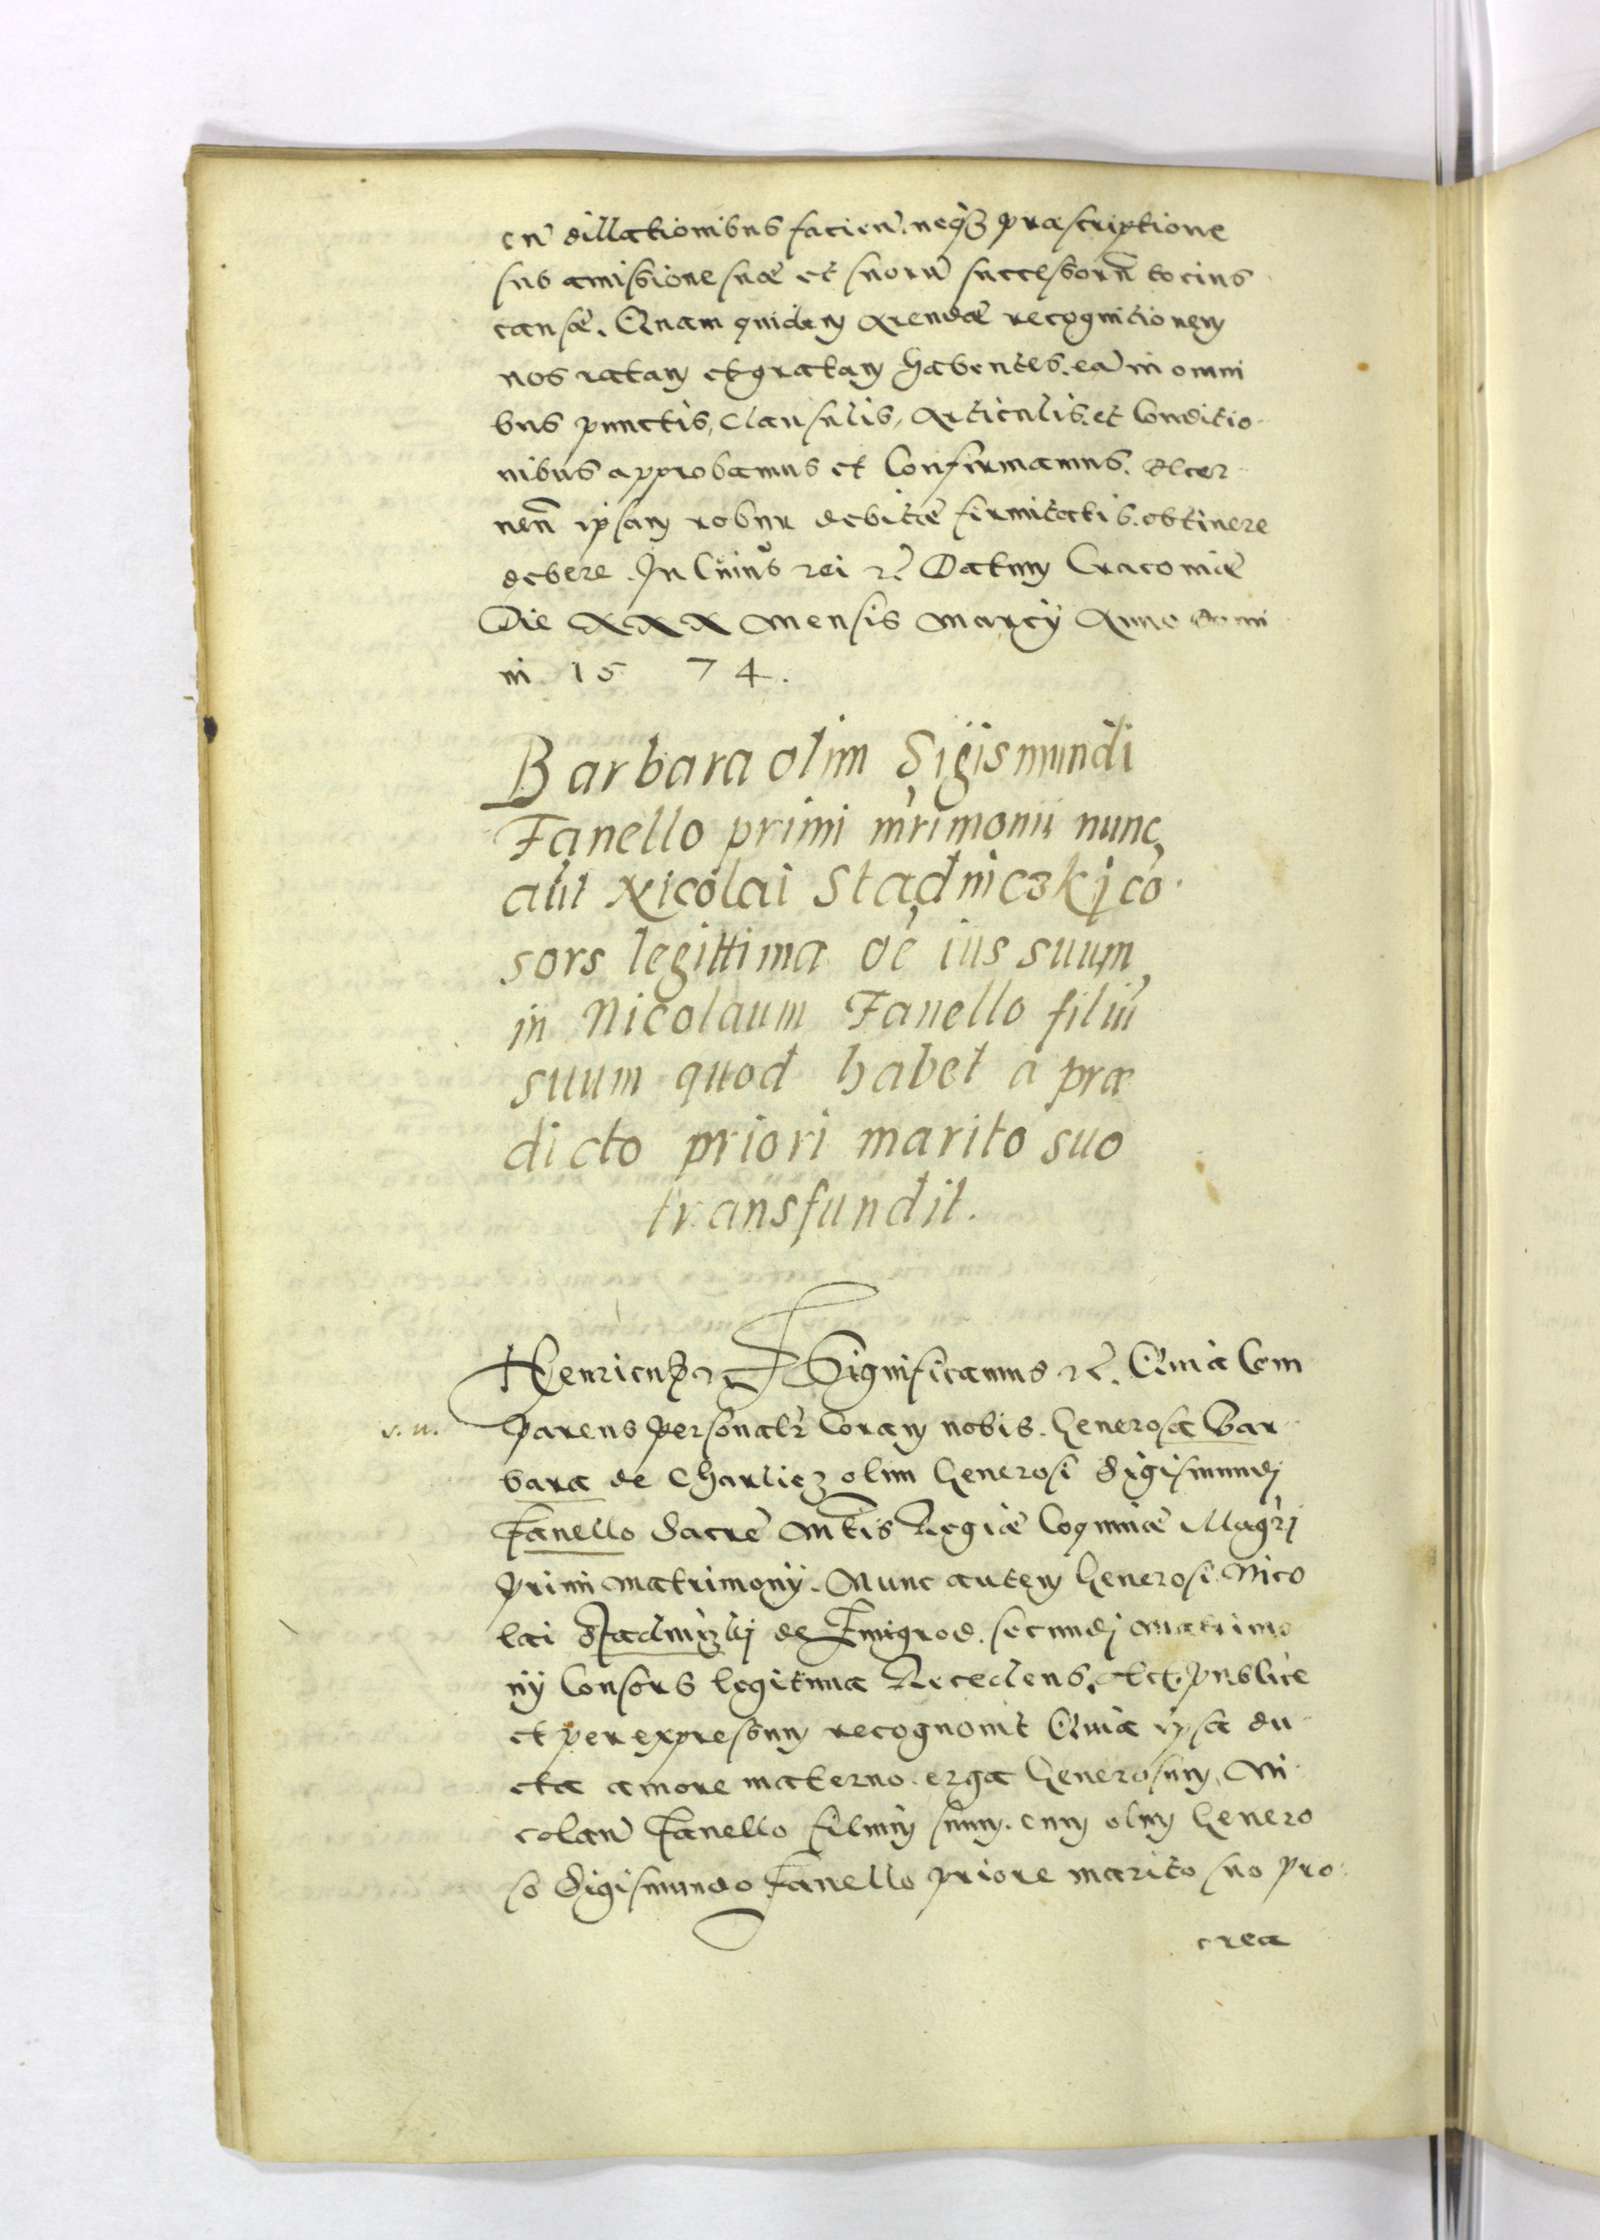 cū dillationibus facien̄. neqȝ præscriptione
sub amissione suæ et suorū successorū tocius
causæ. Quam quidem Arendæ recognitionem
nos ratam et gratam habentes. eā in omni
bus punctis, Clausulis, Articulis. et Conditio
nibus approbamus et Confirmamus. decer
nen̄ ipsam robur debitæ firmitatis. obtinere
debere. In Cuius rei rc̄ Datum Cracoviæ
Die XXX Mensis Marcÿ Anno Domi
ni 15 74.
Barbara olim Sigismundi
Fanello primi m̄rimonii nunc
aūt Nicolai Stadniczkj cō
sors legittima oē ius suum
in Nicolaum Fanello filiū
suum quod habet a præ
dicto priori marito suo
transfundit.
Henricus rc̄ Significamus rc̄. Quia Com
v. u.
parens personalr̄ Coram nobis. Generosa Bar
bara de Charliez olim Generosi Sigismundj
Fanello Sacræ Mt̄is Regiæ Coquinæ Magr̄j
primi Matrimonÿ. Nunc autem Generosi Nico
lai Stadniczkj de Zmigrod. secundj Matrimo
nÿ Consors legitima Recedens. etc. publice
et per expressum recognovit Quia ipsa du
cta amore materno. erga Generosum Ni
colaū Fanello filium suum. cum olim Genero
so Sigismundo Fanello priore marito suo pro
crea